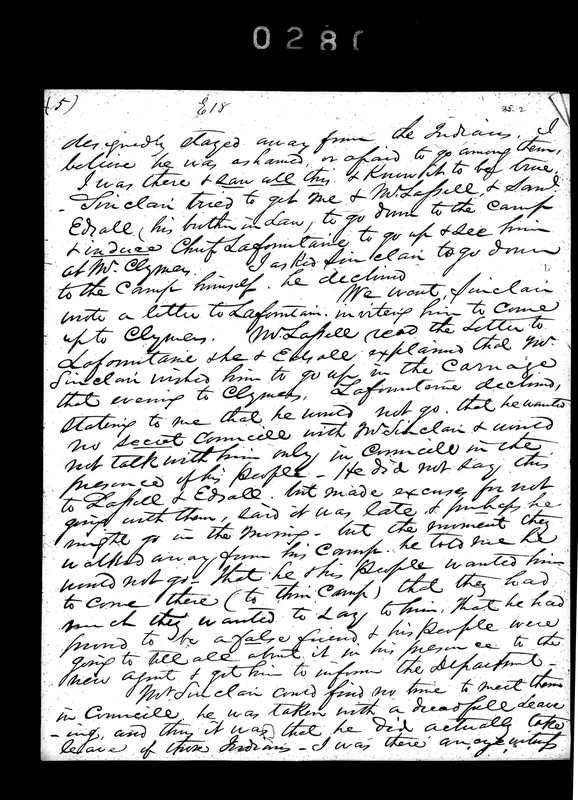 0280
(5) E18 35-2
designedly stayed away from the Indians. I
believe he was ashamed, or afraid to go among them,
I was there & saw all this & Know it to be true.
- Sinclair tried to get me & Mr. Lassell, & Saml
Edsall (his brother in Law,) to go down to the camp
& induce Chief Lafountaine to go up & see him
at Mr. Clymers. I asked Sinclair to go down
to the Camp himself. he declined
We went, Sinclair
wrote a letter to Lafountain. inviting him to come
up to Clymers. Mr. Lassell read the Letter to
Lafountaine & he & Edsall explained that Mr
Sinclair wished him to go up in the Carriage
that evening to Clymers, Lafountaine declined,
stating to me that he would not go. that he wanted
no secret Councill with Mr. Sinclair & would
not talk with him only in Councill in the
presence of his People - He did not say this
to Lassell & Edsall. but made excuses for not
going with them, said it was late & perhaps he
might go in the morning - but the moment they
walked away from his Camp. he told me he
would not go - That he & his People wanted him
to come there (to their Camp) that they had
much they wanted to say to him. That he had
proved to be a false friend & his People were
going to tell all about it in his presence to the
new agent & get him to inform the Department -
Mr. Sinclair could find no time to meet them
in Councill he was taken with a dreadfull leave
-ing, and thus it was that he did actually take
leave of those Indians - I was there an eye witness